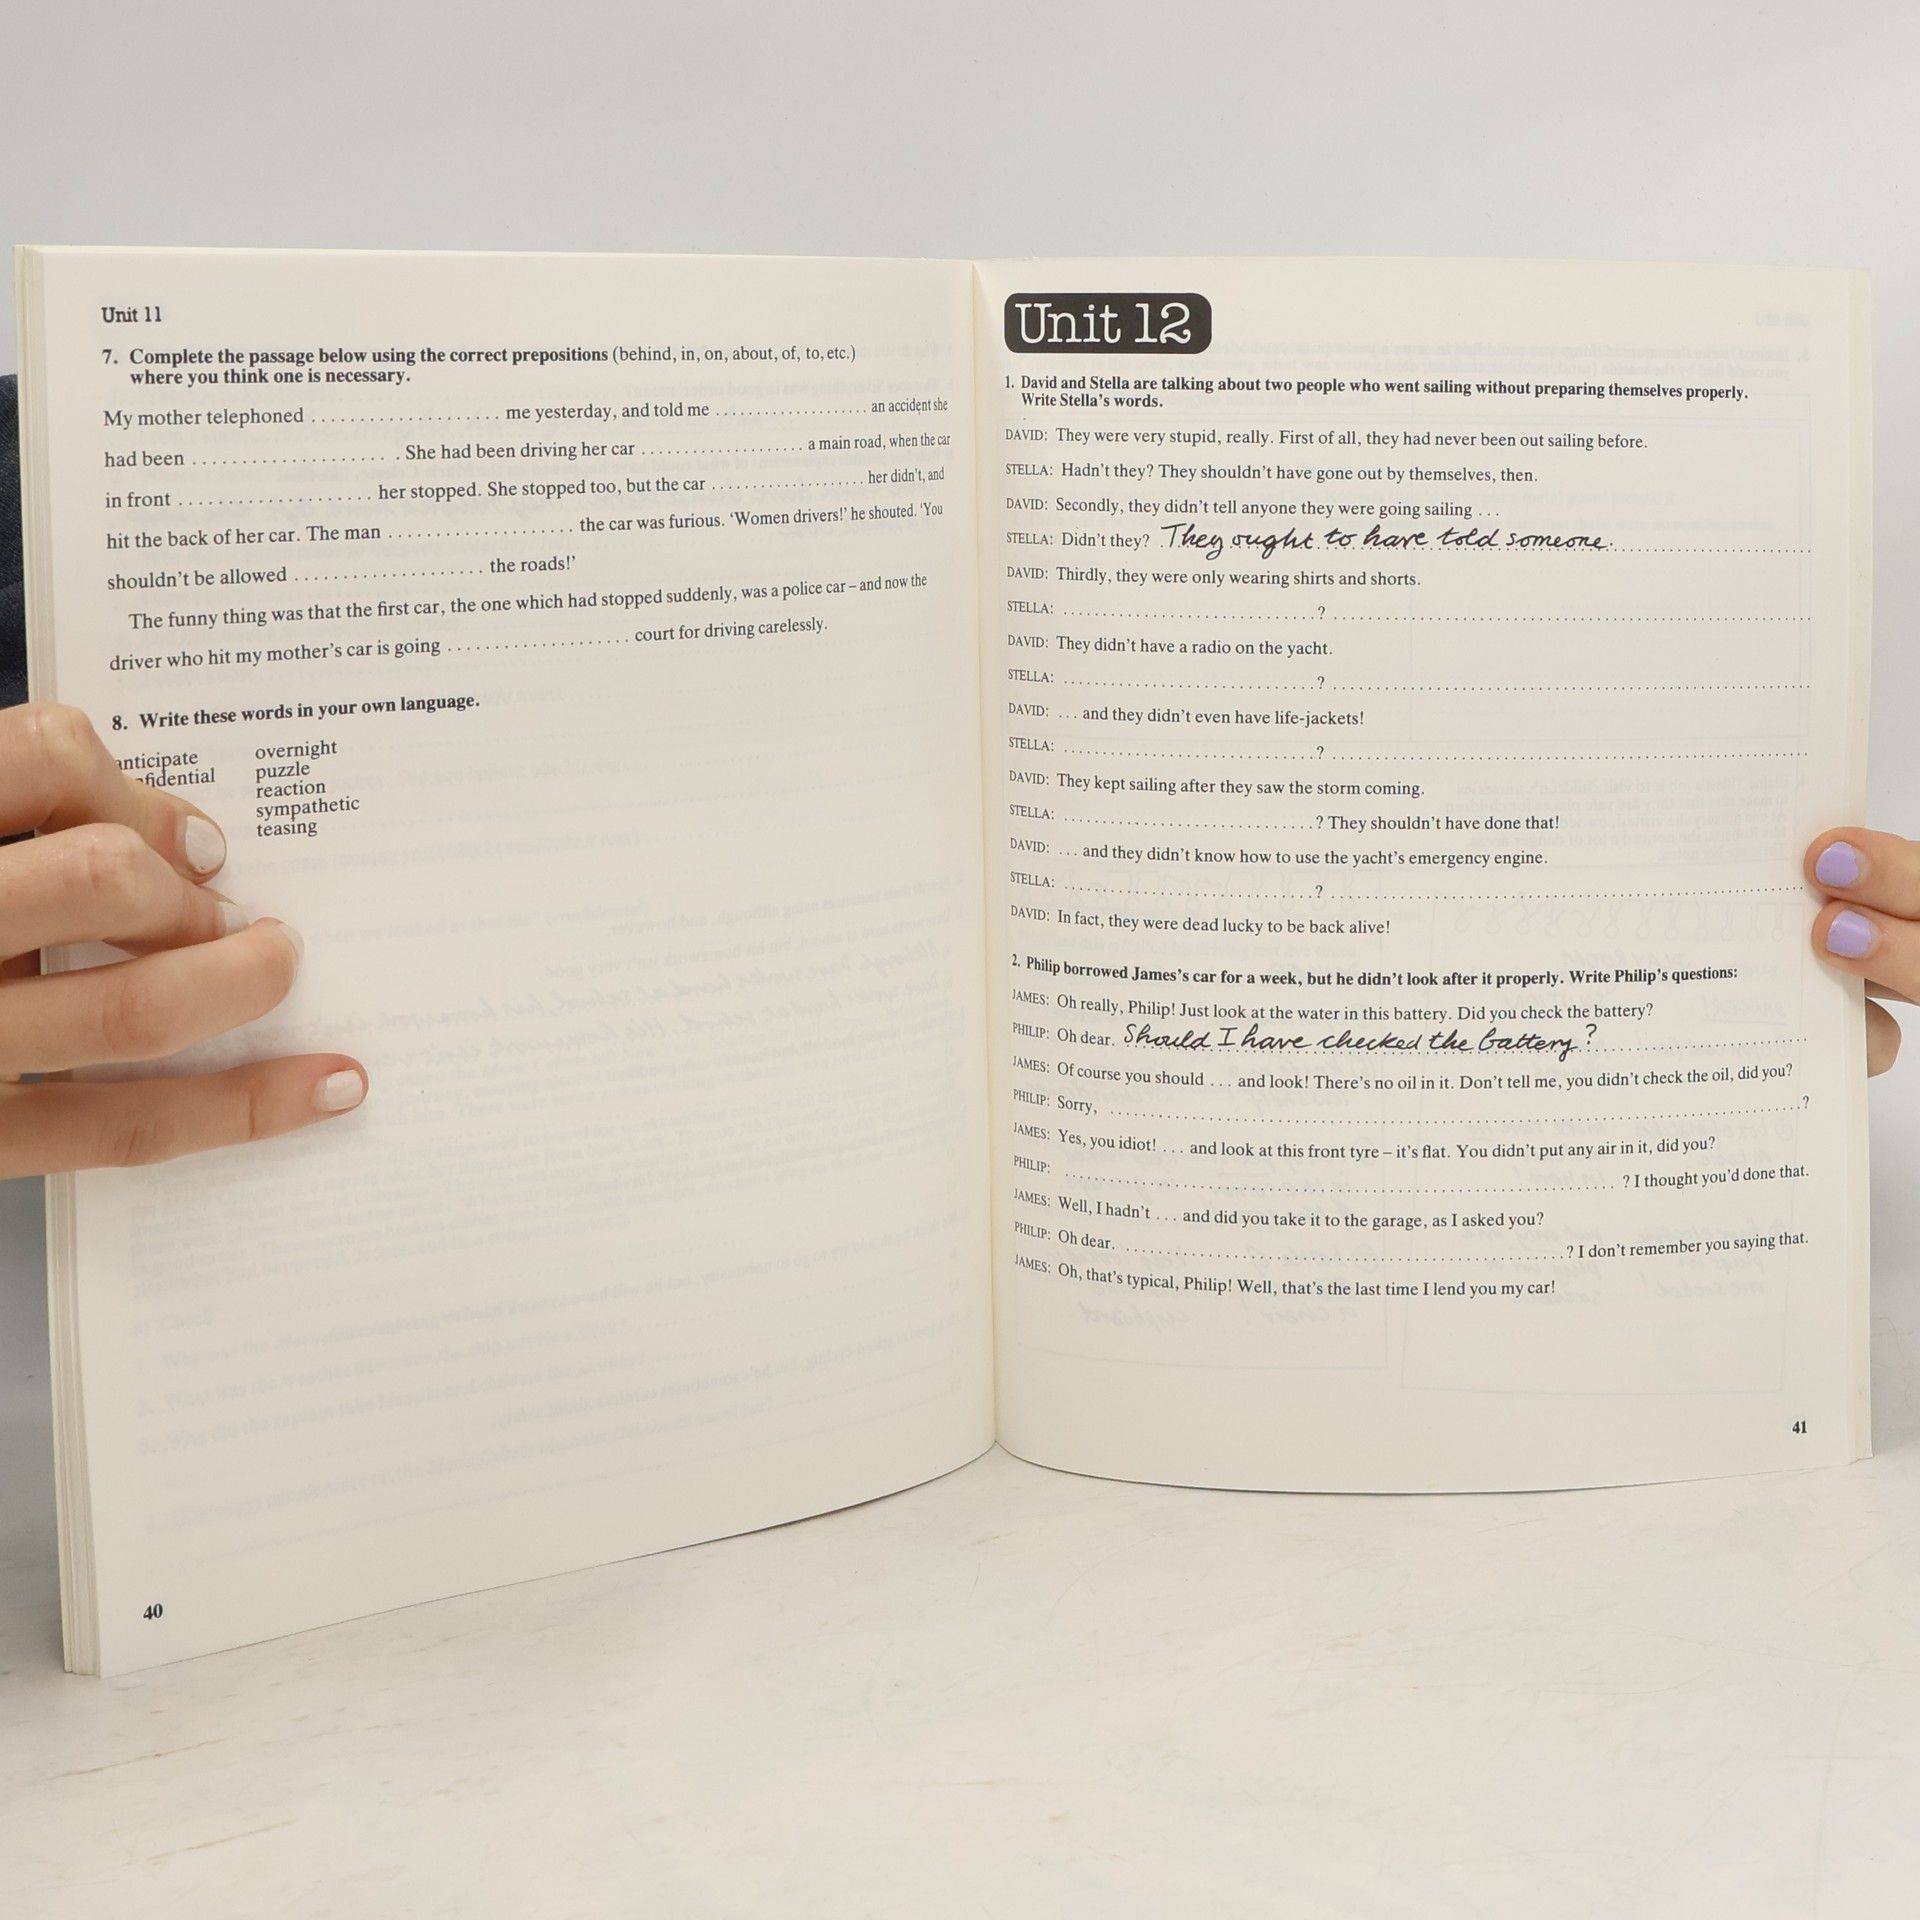 Unit 11
7. Complete the passage below using the correct prepositions (behind, in, on, about, of, to, etc.)
where you think one is necessary.
My mother telephoned .................... me yesterday, and told me ................... an accident she
had been .................... . She had been driving her car .................... a main road, when the car
in front .................... her stopped. She stopped too, but the car ................... her didn't, and
hit the back of her car. The man .................... the car was furious. 'Women drivers!' he shouted. 'You
shouldn't be allowed .................... the roads!'
The funny thing was that the first car, the one which had stopped suddenly, was a police car – and now the
driver who hit my mother's car is going .................... court for driving carelessly.
8. Write these words in your own language.
anticipate overnight
fidential puzzle
reaction
sympathetic
teasing
40
Unit 12
1. David and Stella are talking about two people who went sailing without preparing themselves properly.
Write Stella's words.
DAVID: They were very stupid, really. First of all, they had never been out sailing before.
STELLA: Hadn't they? They shouldn't have gone out by themselves, then.
DAVID: Secondly, they didn't tell anyone they were going sailing ...
STELLA: Didn't they? They ought to have told someone.
DAVID: Thirdly, they were only wearing shirts and shorts.
STELLA: ................................? ................................
DAVID: They didn't have a radio on the yacht.
STELLA: ................................? ................................
DAVID: ... and they didn't even have life-jackets!
STELLA: ................................? ................................
DAVID: They kept sailing after they saw the storm coming.
STELLA: ................................? They shouldn't have done that!
DAVID: ... and they didn't know how to use the yacht's emergency engine.
STELLA: ................................? ................................
DAVID: In fact, they were dead lucky to be back alive!
2. Philip borrowed James's car for a week, but he didn't look after it properly. Write Philip's questions:
JAMES: Oh really, Philip! Just look at the water in this battery. Did you check the battery?
PHILIP: Oh dear. Should I have checked the battery?
JAMES: Of course you should ... and look! There's no oil in it. Don't tell me, you didn't check the oil, did you?
PHILIP: Sorry, ................................?
JAMES: Yes, you idiot! ... and look at this front tyre – it's flat. You didn't put any air in it, did you?
PHILIP: ................................? I thought you'd done that.
JAMES: Well, I hadn't ... and did you take it to the garage, as I asked you?
PHILIP: Oh dear. ................................? I don't remember you saying that.
JAMES: Oh, that's typical, Philip! Well, that's the last time I lend you my car!
41